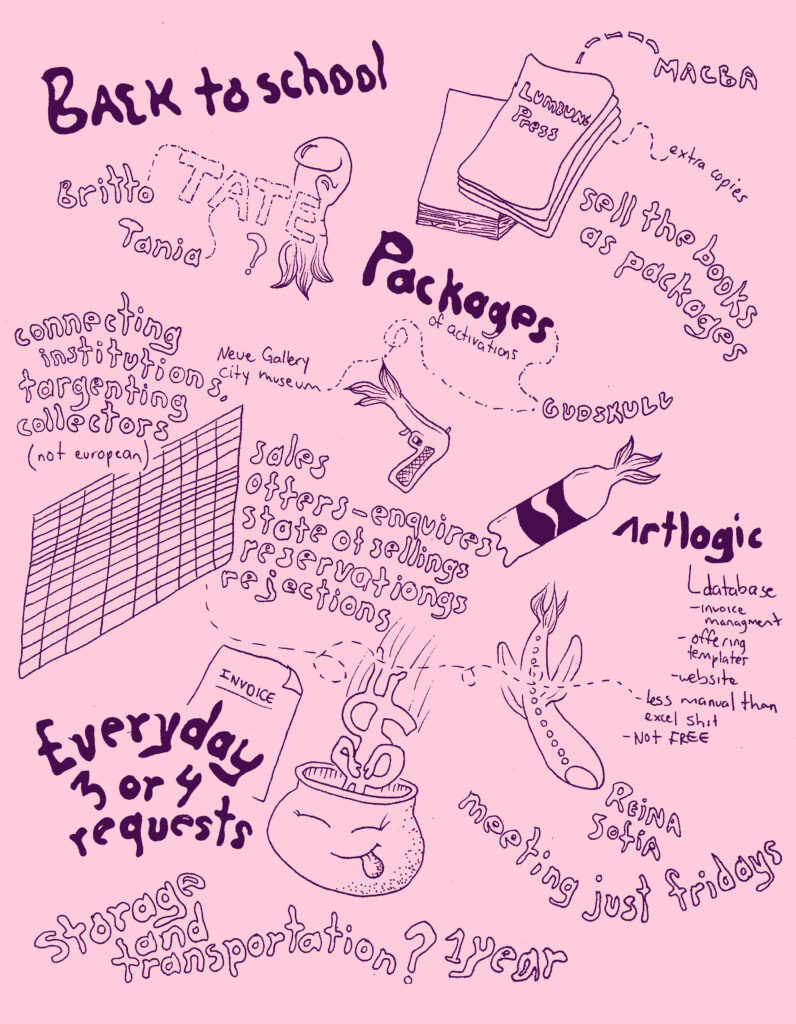 BACK to school
MACBA
LUMBUNG
Press
extra copies
Britto
TATE
Tania
?
sell the books
as packages
Packages
of activations
connecting
institutions,
targenting
collectors
(not european)
Neue Gallery
City museum
GUDSKULL
sales
offers-enquires
state of sellings
reservationgs
rejections
Artlogic
database
-invoice
managment
-offering
templates
-website
-less manual than
excel shit
-NOT FREE
INVOICE
Everyday
3 or 4
requests
REINA
SOFIA
meeting just fridays
storage
and
transportation? 1 year